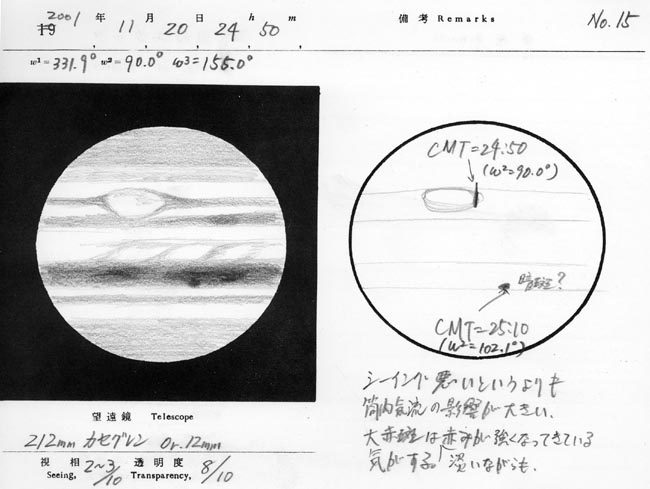 2001 年 11 月 20 日 24 h 50 m
備考 Remarks
No.15
ω¹=331.9° ω²=90.0° ω³=155.0°
CMT=24:50
(ω²=90.0°)
暗斑?
CMT=25:10
(ω²=102.1°)
望遠鏡 Telescope
212mm カセグレン Or.12mm
視相 Seeing, 2~3/10 透明度 Transparency, 8/10
シーイング悪いというよりも
筒内気流の影響が大きい.
大赤斑は赤みが強くなってきている
気がする。淡いながらも.